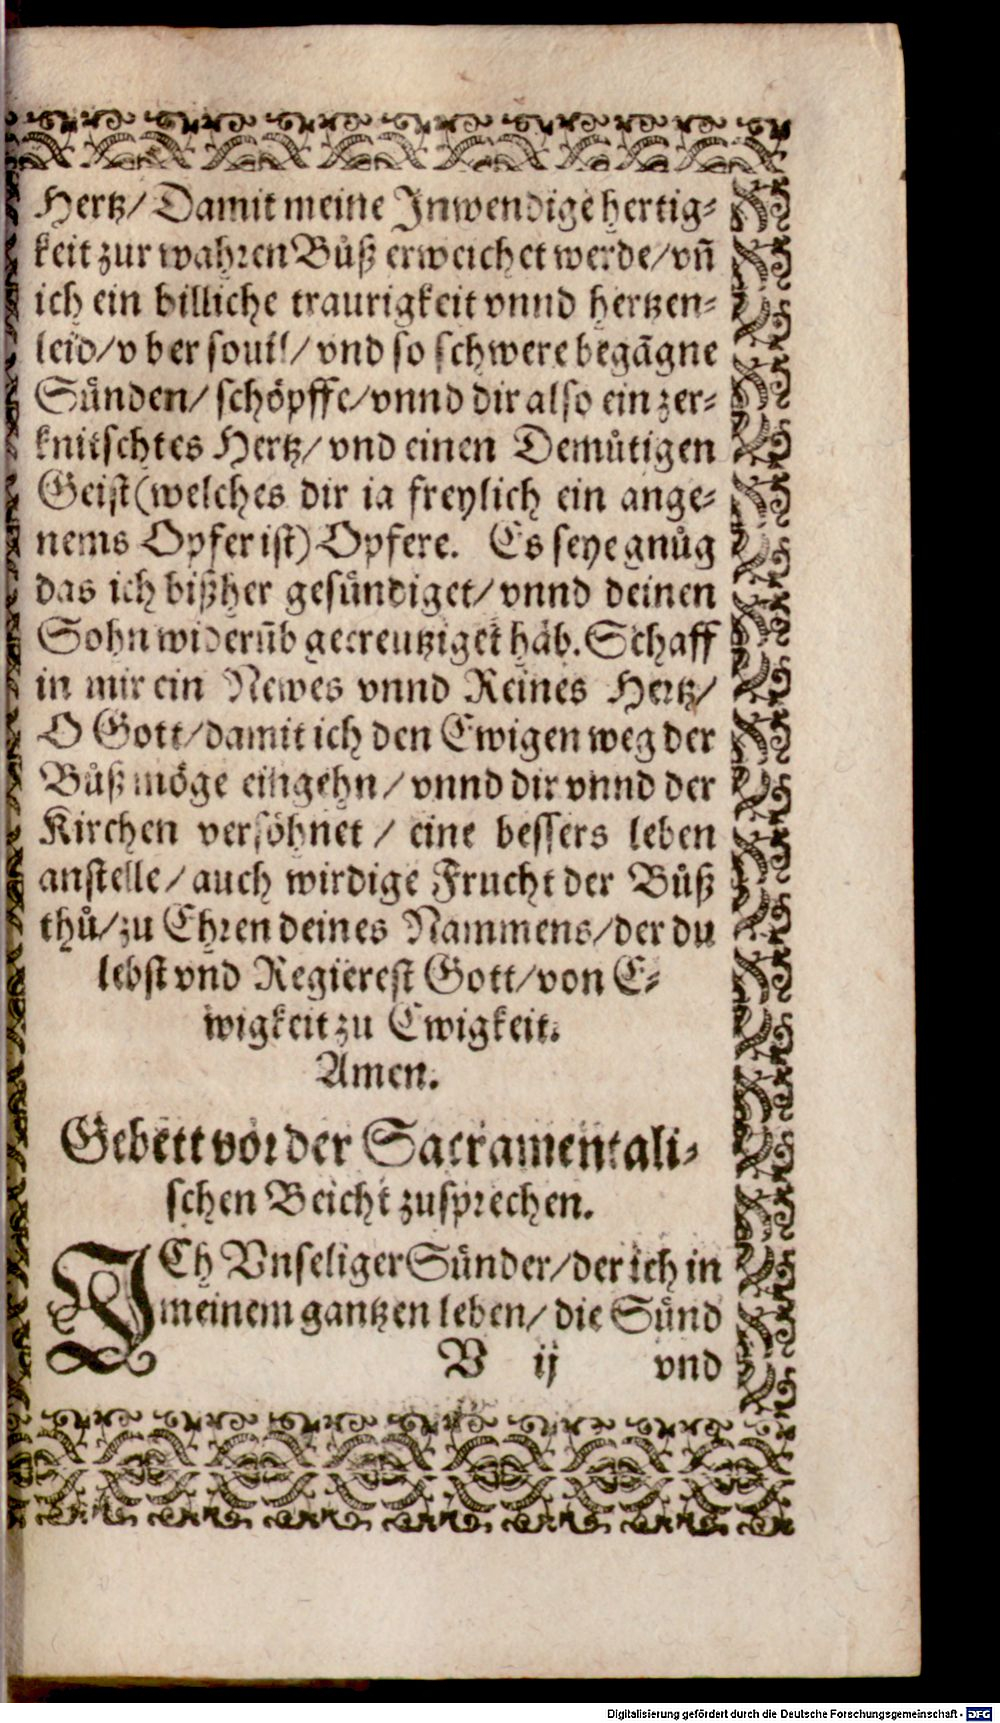 Hertz/ Damit meine Inwendige hertig⸗
keit zur wahren Bůß erweichet werde/ vñ
ich ein billiche traurigkeit vnnd hertzen⸗
leid/ vber souil/ vnd so schwere begãgne
Sünden/ schöpffe/ vnnd dir also ein zer⸗
knitschtes Hertz/ vnd einen Demůtigen
Geist (welches dir ia freylich ein ange⸗
nems Opfer ist) Opfere. Es seye gnůg
das ich bißher gesündiget/ vnnd deinen
Sohn widerũb gecreutziget hab. Schaff
in mir ein Newes vnnd Reines Hertz/
O Gott/ damit ich den Ewigen weg der
Bůß möge eingehn/ vnnd dir vnnd der
Kirchen versöhnet/ eine bessers leben
anstelle/ auch wirdige Frucht der Bůß
thů/ zu Ehren deines Nammens/ der du
lebst vnd Regierest Gott/ von E⸗
wigkeit zu Ewigkeit.
Amen.
Gebett vor der Sacramentali⸗
schen Beicht zusprechen.
ICh Vnseliger Sünder/ der ich in
meinem gantzen leben/ die Sünd
V ij vnd
Digitalisierung gefördert durch die Deutsche Forschungsgemeinschaft - DFG